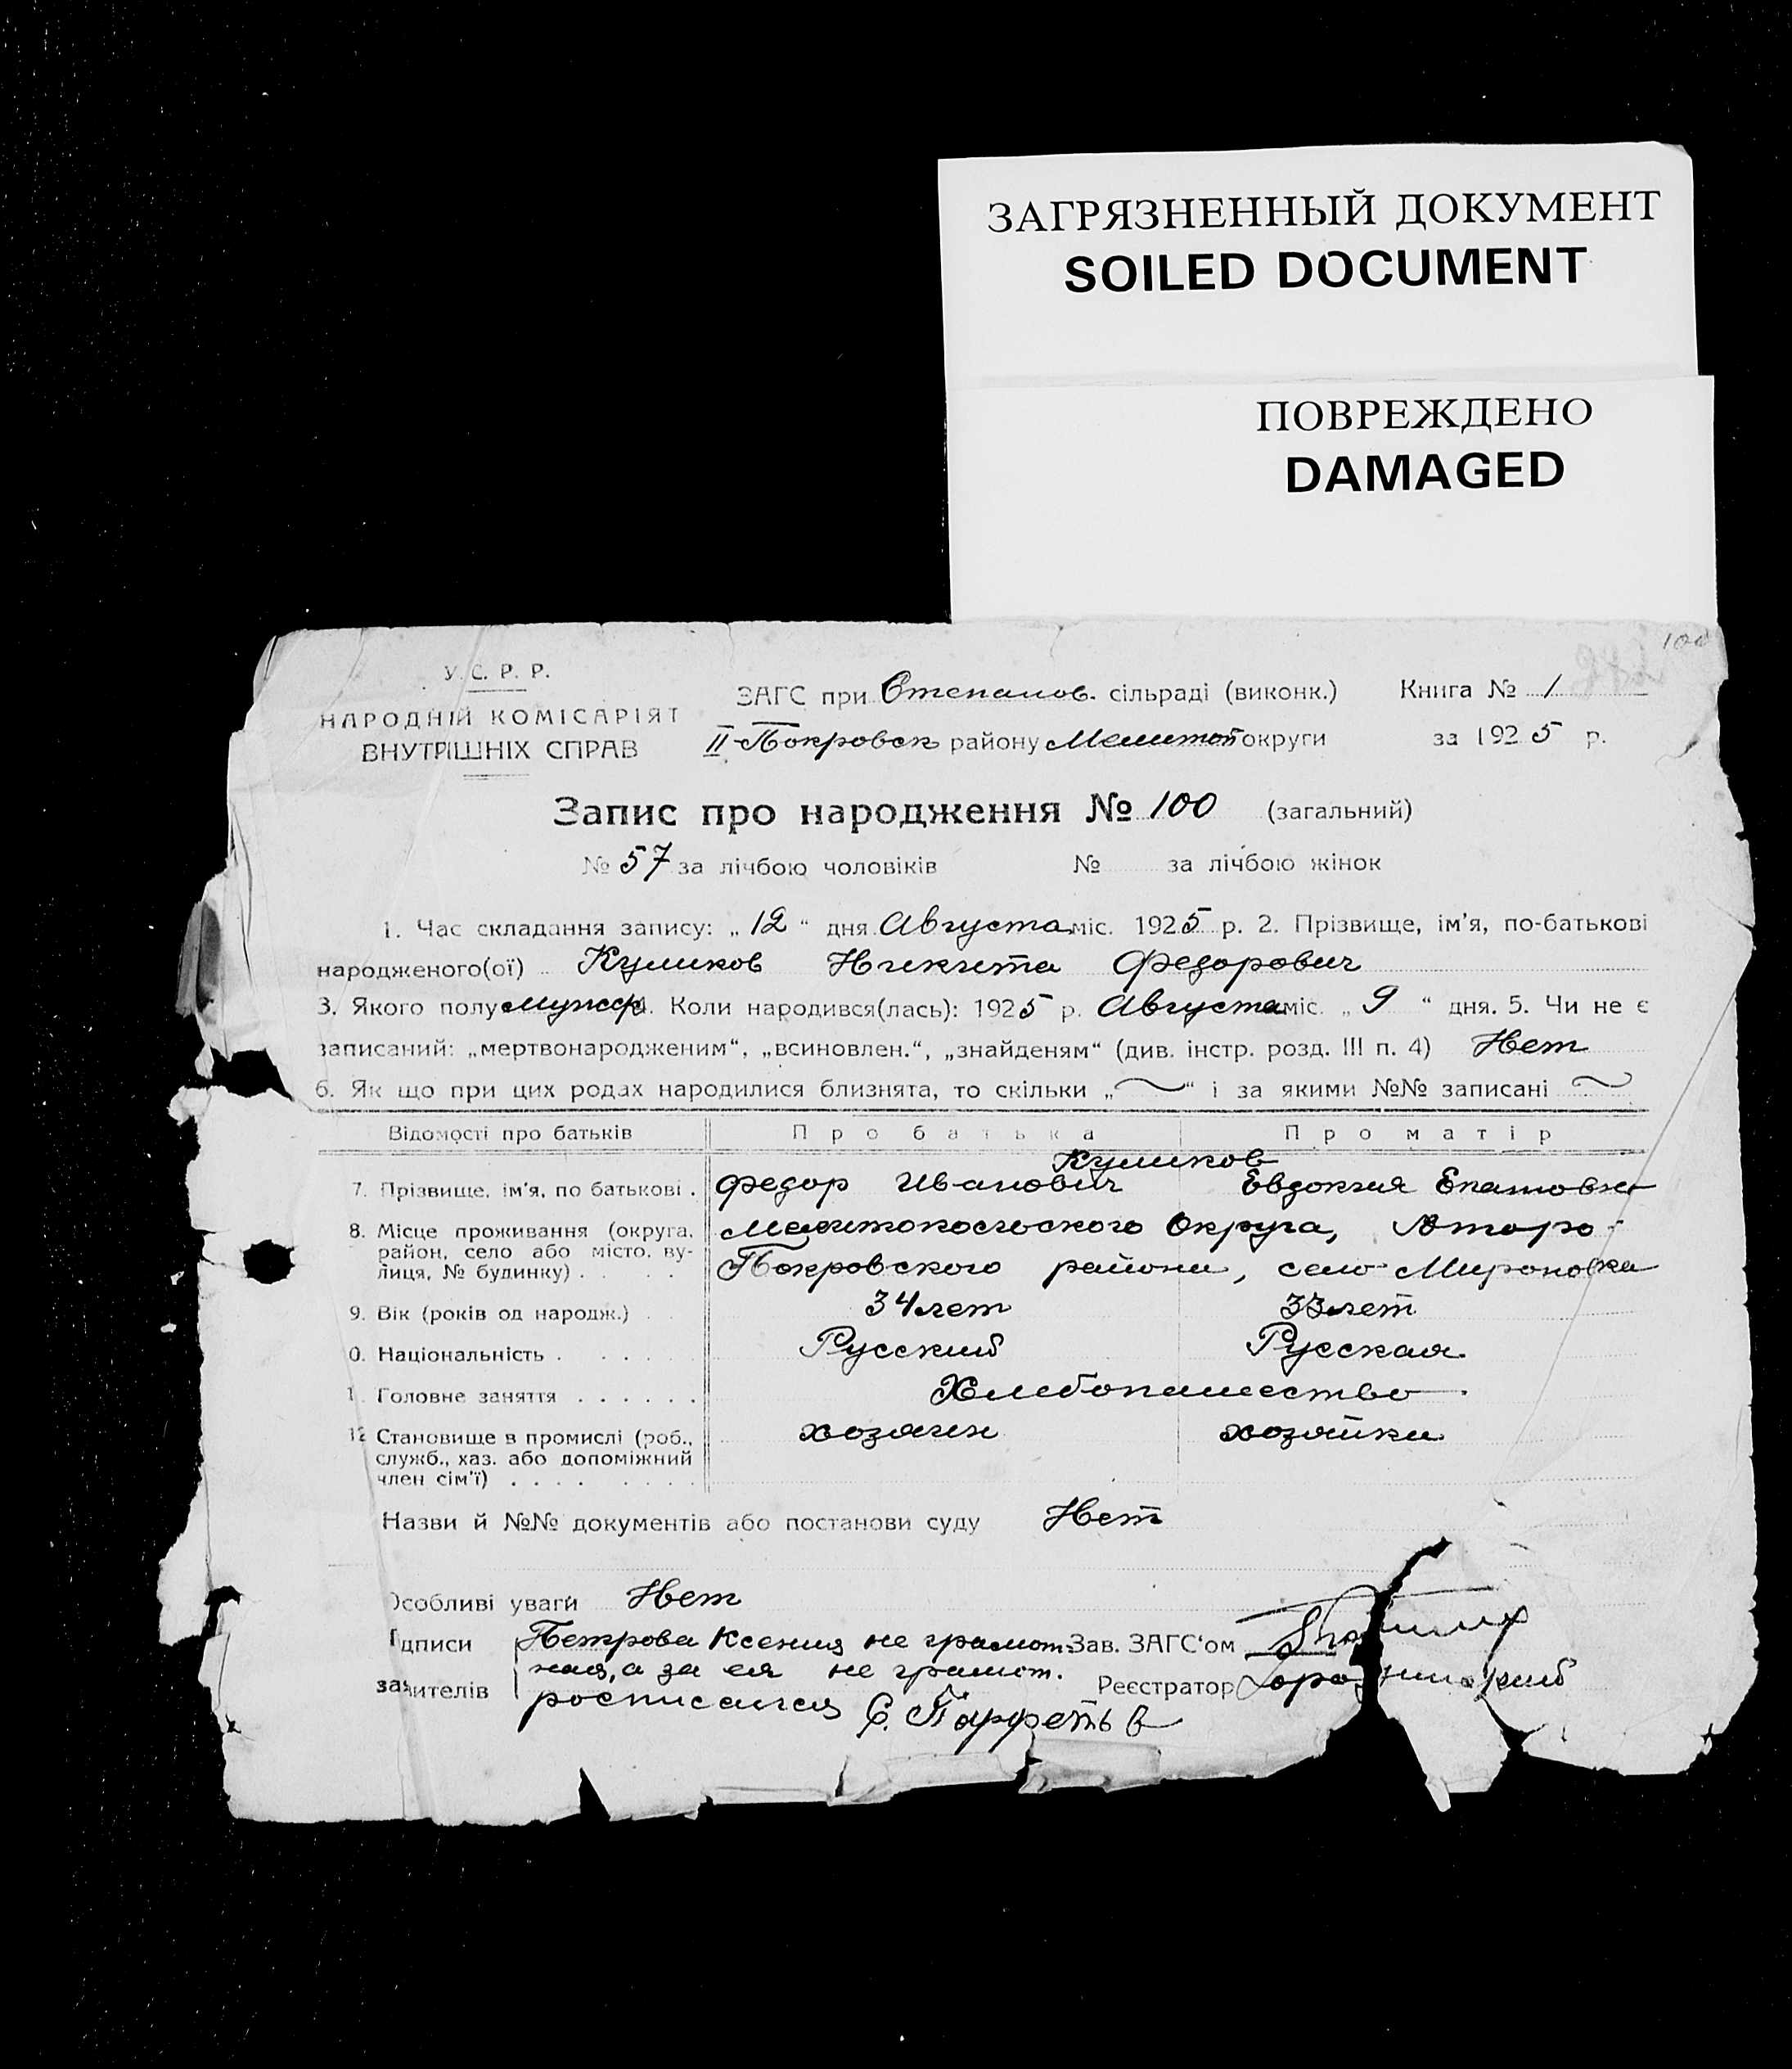 ЗАГРЯЗНЕННЫЙ ДОКУМЕНТ
SOILED DOCUMENT
ПОВРЕЖДЕНО
DAMAGED
100
У. С. Р. Р.
НАРОДНІЙ КОМІСАРІЯТ
ВНУТРІШНІХ СПРАВ
ЗАГС при Степанов. сільраді (виконк.) Книга № 1
II Покровск району Мелитоп округи за 1925 р.
Запис про народження № 100 (загальний)
№ 57 за лічбою чоловіків № за лічбою жінок
1. Час складання запису: „12“ дня Августа міс. 1925 р. 2. Прізвище, ім'я, по-батькові
народженого(ої) Куликов Никита Федорович
3. Якого полу мужск 4. Коли народився(лась): 1925 р. Августа міс. „9“ дня. 5. Чи не є
записаний: „мертвонародженим“, „всиновлен.“, „знайденям“ (див. інстр. розд. III п. 4) Нет
6. Як що при цих родах народилися близнята, то скільки „ “ і за якими №№ записані
Відомості про батьків Про батька Про матір
Куликов
7. Прізвище, ім'я, по батькові . Федор Иванович Евдокия
8. Місце проживання (округа, район, село або місто, вулиця, № будинку) . Мелитопольского Округа, Второ-
Покровского района, село Мироновка
9. Вік (років од народж.) 34 лет 33 лет
0. Національність . Русский Русская
1. Головне заняття . Хлебопашество
12 Становище в промислі (роб., хозяин хозяйка
служб., хаз. або допоміжний
член сім'ї)
Назви й №№ документів або постанови суду Нет
Особливі уваги Нет
ідписи Петрова Ксения не грамот- Зав. ЗАГС'ом
ная, а за ея не грамот.
заявителів Реєстратор
росписался С.